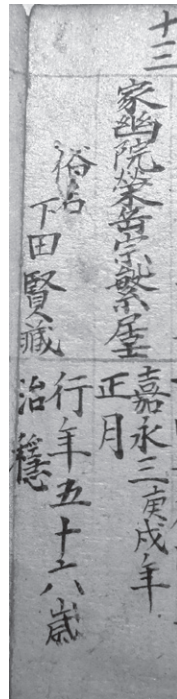 十三
家幽院榮岳宗繁居士
俗名
下田賢藏
嘉永三庚戌年
正月
行年五十六歳
治穏